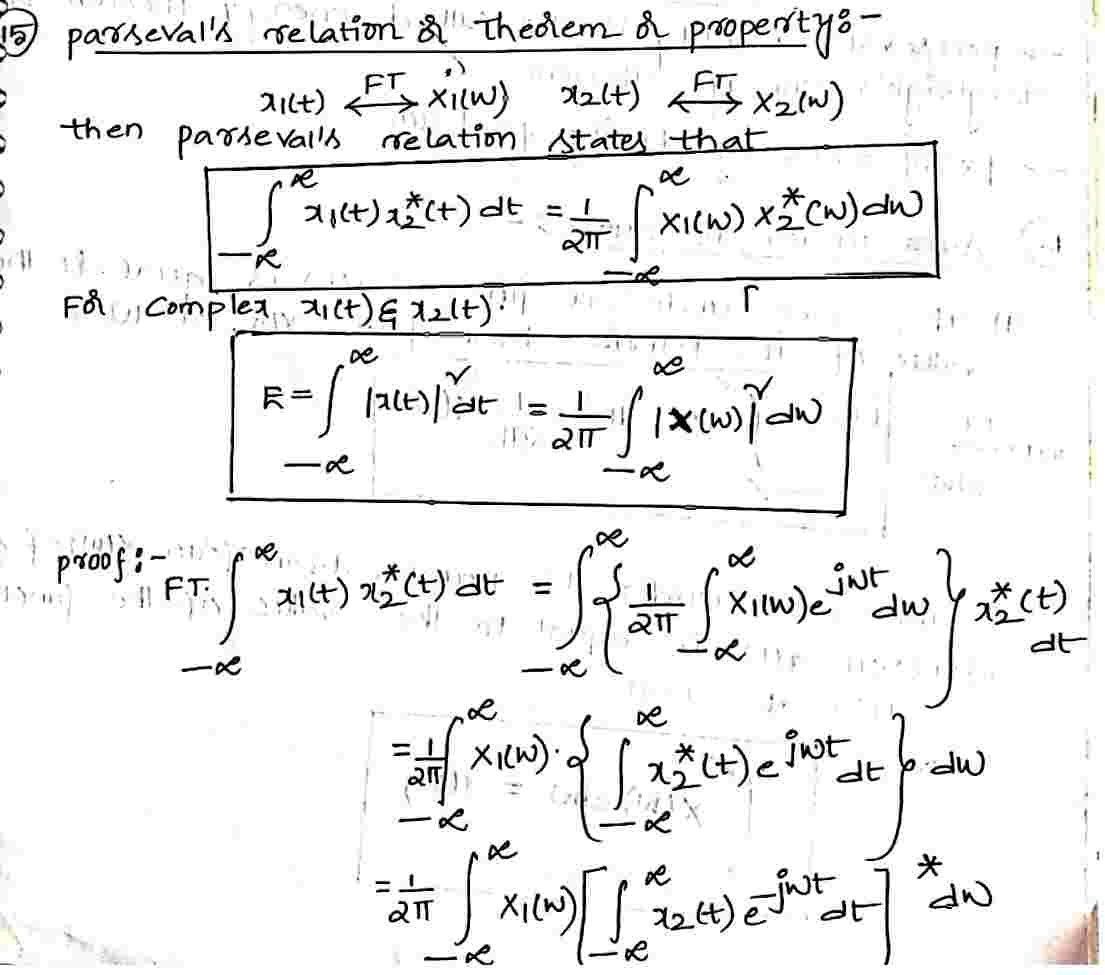 15 parseval's relation or theorem or property:-
x1(t) ⟷FT X1(w) x2(t) ⟷FT X2(w)
then parseval's relation states that
∫_{-∞}^{∞} x1(t) x2*(t) dt = 1/2π ∫_{-∞}^{∞} X1(w) X2*(w) dw
For complex x1(t) & x2(t)
E = ∫_{-∞}^{∞} |x(t)|² dt = 1/2π ∫_{-∞}^{∞} |X(w)|² dw
proof:- FT. ∫_{-∞}^{∞} x1(t) x2*(t) dt = ∫_{-∞}^{∞} { 1/2π ∫_{-∞}^{∞} X1(w) e^{jwt} dw } x2*(t) dt
= 1/2π ∫_{-∞}^{∞} X1(w) · { ∫_{-∞}^{∞} x2*(t) e^{jwt} dt } · dw
= 1/2π ∫_{-∞}^{∞} X1(w) [ ∫_{-∞}^{∞} x2(t) e^{-jwt} dt ]* dw